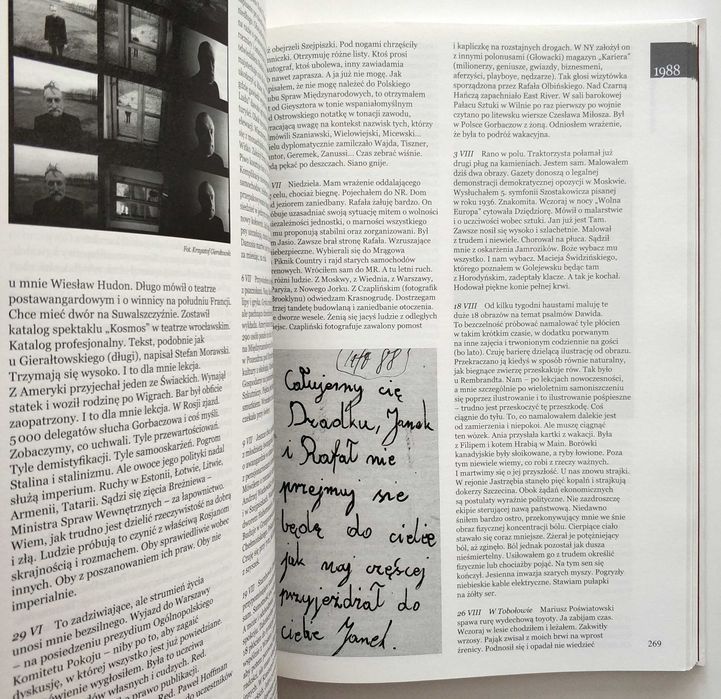 Fot. Krzysztof Gierałtowski
u mnie Wiesław Hudon. Długo mówił o teatrze
postawangardowym i o winnicy na południu Francji.
Chce mieć dwór na Suwalszczyźnie. Zostawił
katalog spektaklu „Kosmos” w teatrze wrocławskim.
Katalog profesjonalny. Tekst, podobnie jak
u Gierałtowskiego (długi), napisał Stefan Morawski.
Trzymają się wysoko. I to dla mnie lekcja.
Z Ameryki przyjechał jeden ze Świackich. Wynajął
statek i woził rodzinę po Wigrach. Bar był obficie
zaopatrzony. I to dla mnie lekcja. W Rosji zjazd.
5 000 delegatów słucha Gorbaczowa i coś myśli.
Zobaczymy, co uchwali. Tyle przewartościowań.
Tyle demistyfikacji. Tyle samooskarżeń. Pogrom
Stalina i stalinizmu. Ale owoce jego polityki nadal
służą imperium. Ruchy w Estonii, Łotwie, Litwie,
Armenii, Tatarii. Sądzi się zięcia Breżniewa –
Ministra Spraw Wewnętrznych – za łapownictwo.
Wiem, jak trudno jest dzielić rzeczywistość na dobrą
i złą. Ludzie próbują to czynić z właściwą Rosjanom
skrajnością i rozmachem. Oby sprawiedliwie wobec
innych. Oby z poszanowaniem ich praw. Oby nie
imperialnie.
29 VI To zadziwiające, ale strumień życia
unosi mnie bezsilnego. Wyjazd do Warszawy
– na posiedzenia prezydium Ogólnopolskiego
Komitetu Pokoju – niby po to, aby zagaić
dyskusję, w której wszystko jest już powiedziane.
ówienie wygłosiłem. Była to uczciwa
ów własnych i cudzych. Red.
prawo publikacji.
Red. Paweł Hoffman
do uczestników
obejrzeli Szejpiszki. Pod nogami chrzęściły
nniczki. Otrzymuję różne listy. Ktoś prosi
autograf, ktoś ubolewa, inny zawiadamia
o nawet zaprasza. A ja już nie mogę. Jak
pisałem, że nie mogę należeć do Polskiego
ubu Spraw Międzynarodowych, to otrzymałem
t od Gieysztora w tonie wspaniałomyślnym
d Ostrowskiego notatkę w tonacji zawodu,
racającą uwagę na kontekst nazwisk tych, którzy
mówili Szaniawski, Wielowiejski, Micewski...
elu dyplomatycznie zamilczało Wajda, Tiszner,
ntor, Geremek, Zanussi... Czas zebrać wiśnie.
dą pękać po deszczach. Siano gnije.
VII Niedziela. Mam wrażenie oddalającego
celu, chociaż biegnę. Pojechałem do NR. Dom
d jeziorem zaniedbany. Rafała żałuję bardzo. On
óbuje uzasadniać swoją sytuację mitem o wolności
iezależności, o jedności, o marności wszystkiego
emu proponują stabilni oraz zorganizowani. Był
m Jasio. Zawsze brał stronę Rafała. Wzruszające
iebezpieczne. Wybierali się do Mrągowa
Piknik Country i rajd starych samochodów
erenowych. Wróciłem sam do MR. A tu letni ruch.
i różni ludzie. Z Moskwy, z Wiednia, z Warszawy,
Paryża, z Nowego Jorku. Z Czaplińskim (fotografik
Brooklynu) odwiedzam Krasnogrudę. Dostrzegam
trzej tandetę budowlaną i zaniedbanie otoczenia.
e dworze wesele. Żenią się jacyś ludzie z odległych
iejsc. Czapliński fotografuje zawalony pomost
17/7 88
Całujemy cię
Dziadku, Janek
i Rafał nie
przejmuj sie
będę do ciebie
jak naj częscej
przyjeżdżał do
ciebie Janek.
1988
i kapliczkę na rozstajnych drogach. W NY założył on
z innymi polonusami (Głowacki) magazyn „Kariera”
(milionerzy, geniusze, gwiazdy, biznesmeni,
aferzyści, playboye, nędzarze). Tak głosi wizytówka
sporządzona przez Rafała Olbińskiego. Nad Czarną
Hańczą zapachniało East River. W sali barokowej
Pałacu Sztuki w Wilnie po raz pierwszy po wojnie
czytano po litewsku wiersze Czesława Miłosza. Był
w Polsce Gorbaczow z żoną. Odniosłem wrażenie,
że była to podróż wakacyjna.
3 VIII Rano w polu. Traktorzysta połamał już
drugi pług na kamieniach. Jestem sam. Malowałem
dziś dwa obrazy. Gazety donoszą o legalnej
demonstracji demokratycznej opozycji w Moskwie.
Wysłuchałem 5. symfonii Szostakowicza pisanej
w roku 1936. Znakomita. Wczoraj w nocy „Wolna
Europa” cytowała Dziędziorę. Mówił o malarstwie
i o uczciwości wobec sztuki. Jan już jest Tam.
Zawsze nosił się wysoko i szlachetnie. Malował
z trudem i niewiele. Chorował na płuca. Sądził
mnie z oskarżenia Jamrozików. Boże wybacz mu
wszystko. I nam wybacz. Macieja Świdzińskiego,
którego poznałem w Golejewsku będąc tam
z Horodyńskim, zadeptały klacze. A tak je kochał.
Hodował piękne konie pełnej krwi.
18 VIII Od kilku tygodni haustami maluję te
duże 18 obrazów na temat psalmów Dawida.
To bezczelność próbować namalować tyle płócien
w takim krótkim czasie, w dodatku porwanym
na inne zajęcia i trwonionym codziennie na gości
(bo lato). Czuję barierę dzielącą ilustrację od obrazu.
Przekraczano ją kiedyś w sposób równie naturalny,
jak biegnące zwierzę przeskakuje rów. Tak było
u Rembrandta. Nam – po lekcjach nowoczesności,
a mnie szczególnie po wieloletnim samoniszczeniu
się poprzez ilustrowanie i to ilustrowanie pośpieszne
– trudno jest przeskoczyć tę przeszkodę. Coś
ciągnie do tyłu. To, co namalowałem dalekie jest
od zamierzenia i niepokoi. Ale muszę ciągnąć
ten wózek. Ania przysłała kartki z wakacji. Była
z Filipem i kotem Hrabią w Main. Borówki
kanadyjskie były słoikowane, a ryby łowione. Poza
tym niewiele wiemy, co robi i z rzeczy ważnych.
I martwimy się o jej przyszłość. U nas znowu strajki.
W rejonie Jastrzębia stanęło pięć kopalń i strajkują
dokerzy Szczecina. Obok żądań ekonomicznych
są postulaty wyraźnie polityczne. Nie zazdroszczę
ekipie sterującej nawą państwową. Niedawno
śniłem bardzo ostro, przekonywujący mnie we śnie
obraz fizycznej koncentracji bólu. Cierpiące ciało
stawało się coraz mniejsze. Zżerał je potężniejący
ból, aż zginęło. Ból jednak pozostał jak dusza
nieśmiertelny. Usiłowałem go z trudem określić
fizycznie lub chociażby pojąć. Na tym sen się
kończył. Jesienna inwazja szarych myszy. Pogryzły
niebieskie kable elektryczne. Stawiam pułapki
na żółty ser.
26 VIII W Tobołowie Mariusz Pośwatowski
spawa rurę wydechową toyocie. Ja zabijam czas.
Wczoraj w lesie chodziłem i leżałem. Zakwitły
wrzosy. Pająk zwisał z moich brwi na wprost
źrenicy. Podnosił się i opadał nie wiedzieć
269